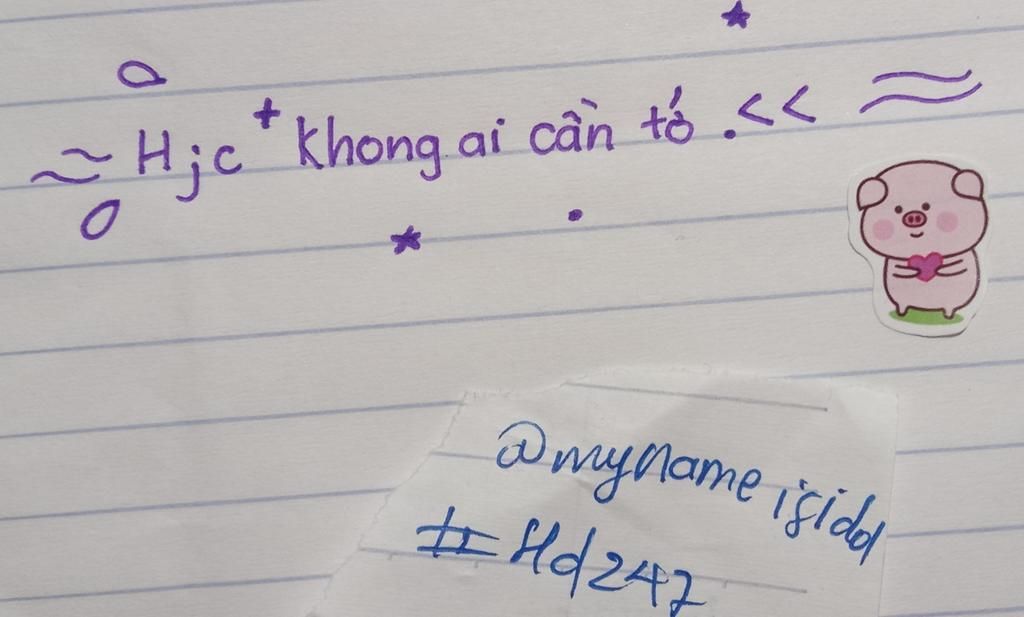 Hjc khong ai cần tớ .<<
@myname isidol
#Hd247